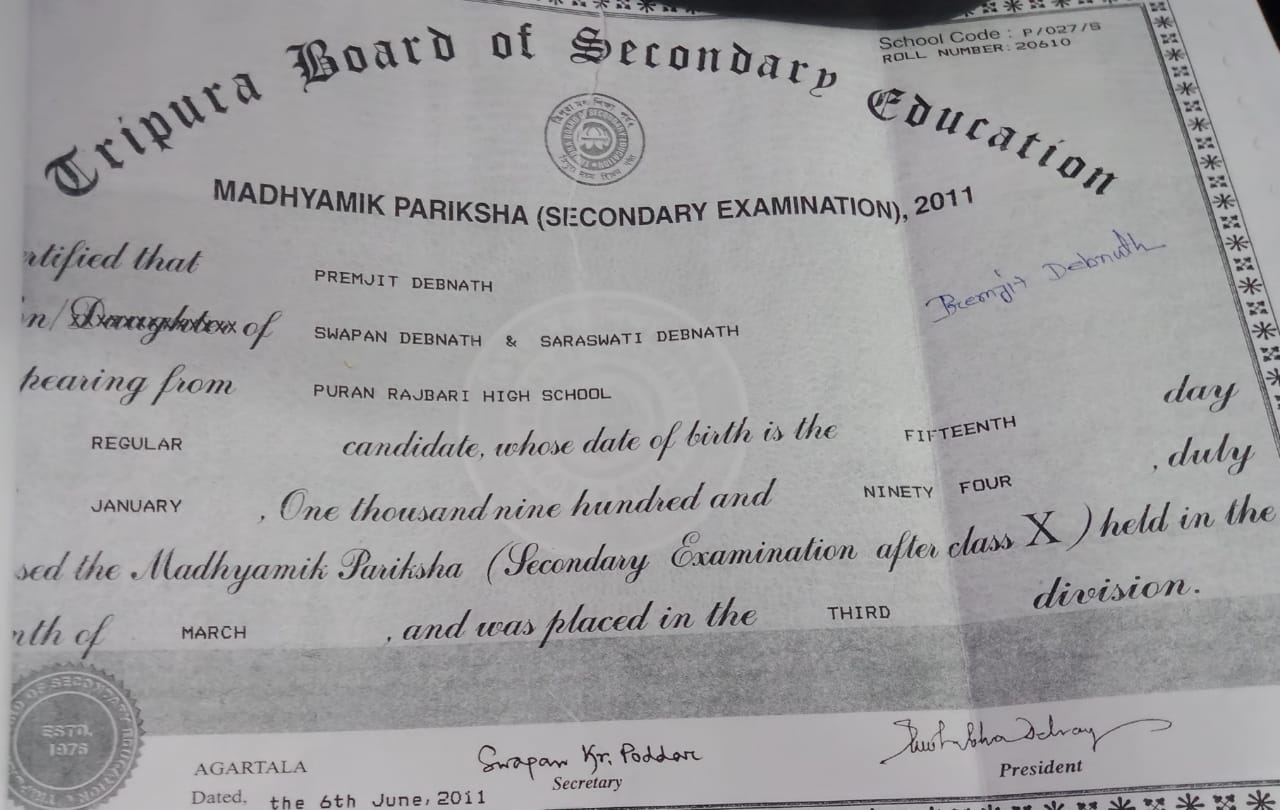 School Code : P/027/S
ROLL NUMBER: 20610
Tripura Board of Secondary Education
MADHYAMIK PARIKSHA (SECONDARY EXAMINATION), 2011
rtified that PREMJIT DEBNATH
Premjit Debnath
n/Daughter of SWAPAN DEBNATH & SARASWATI DEBNATH
pearing from PURAN RAJBARI HIGH SCHOOL
REGULAR candidate, whose date of birth is the FIFTEENTH day
JANUARY , One thousand nine hundred and NINETY FOUR , duly
sed the Madhyamik Pariksha (Secondary Examination after class X) held in the
nth of MARCH , and was placed in the THIRD division.
ESTD.
1976
AGARTALA
Swapan Kr. Poddar
Secretary
President
Dated, the 6th June, 2011